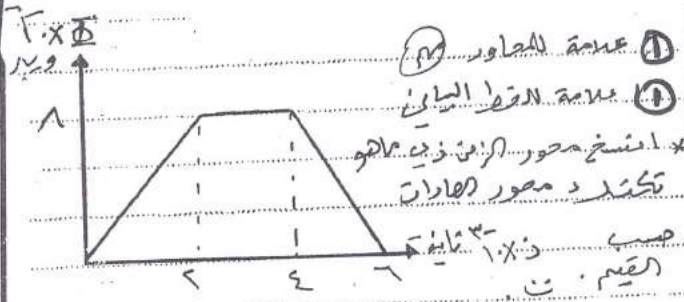 Φ × ١٠
ويبر
٨
٢ ٤ ٦
ز × ١٠⁻³ ثانية
① علامة للمحاور
① علامة للخط البياني
* انسخ محور الزمن زي ماهو
محور الصادات
حسب
القيم.